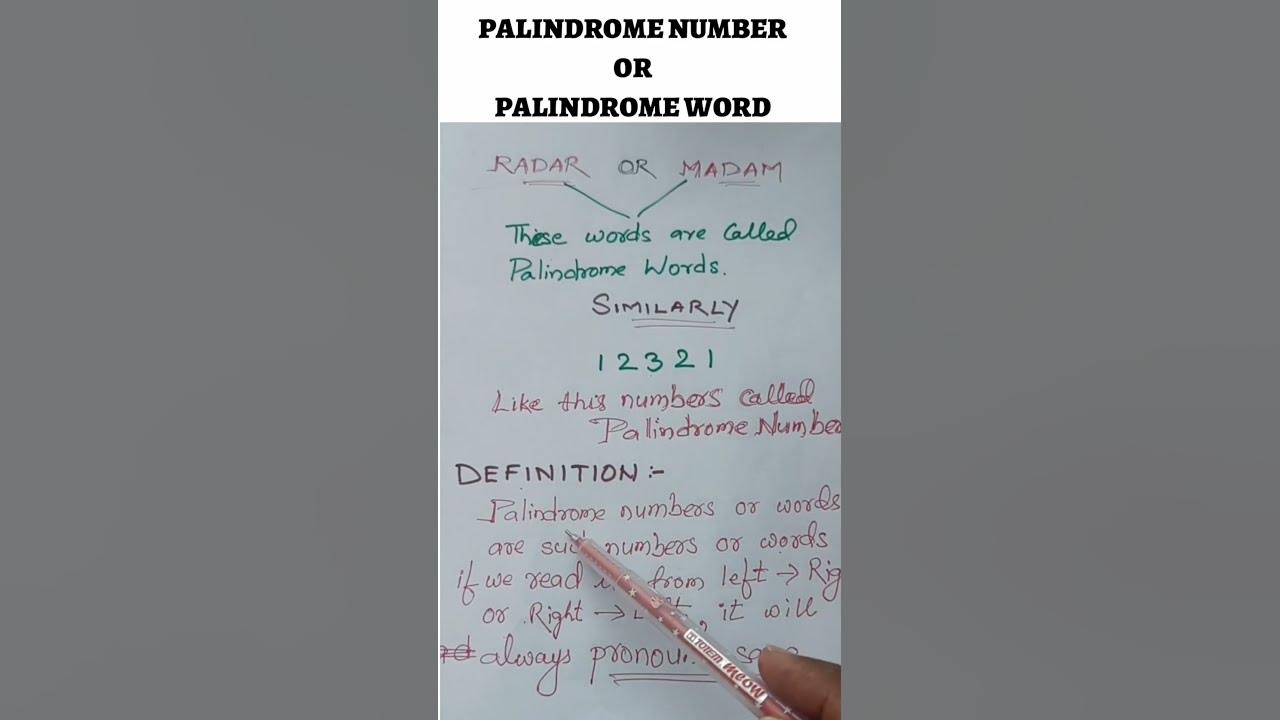 PALINDROME NUMBER
OR
PALINDROME WORD
RADAR OR MADAM
These words are Called
Palindrome Words.
SIMILARLY
1 2 3 2 1
Like this numbers called
Palindrome Number
DEFINITION :-
Palindrome numbers or words
are such numbers or words
if we read from left → Rig
or Right → , it will
always pronou same
TOTEM meow